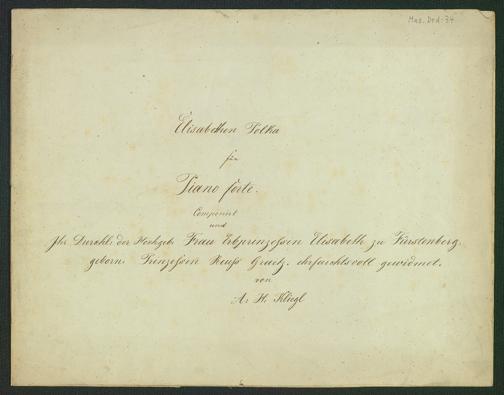 Mus. Drd. 34
Elisabethen Polka
für
Piano forte.
Componirt
und
Ihr. Durchl. der Hochgeb. Frau Erbprinzessin Elisabeth zu Fürstenberg.
geborn. Prinzessin Reuß Graetz. ehrfurchtsvoll gewidmet.
von
A. H. Kliegl